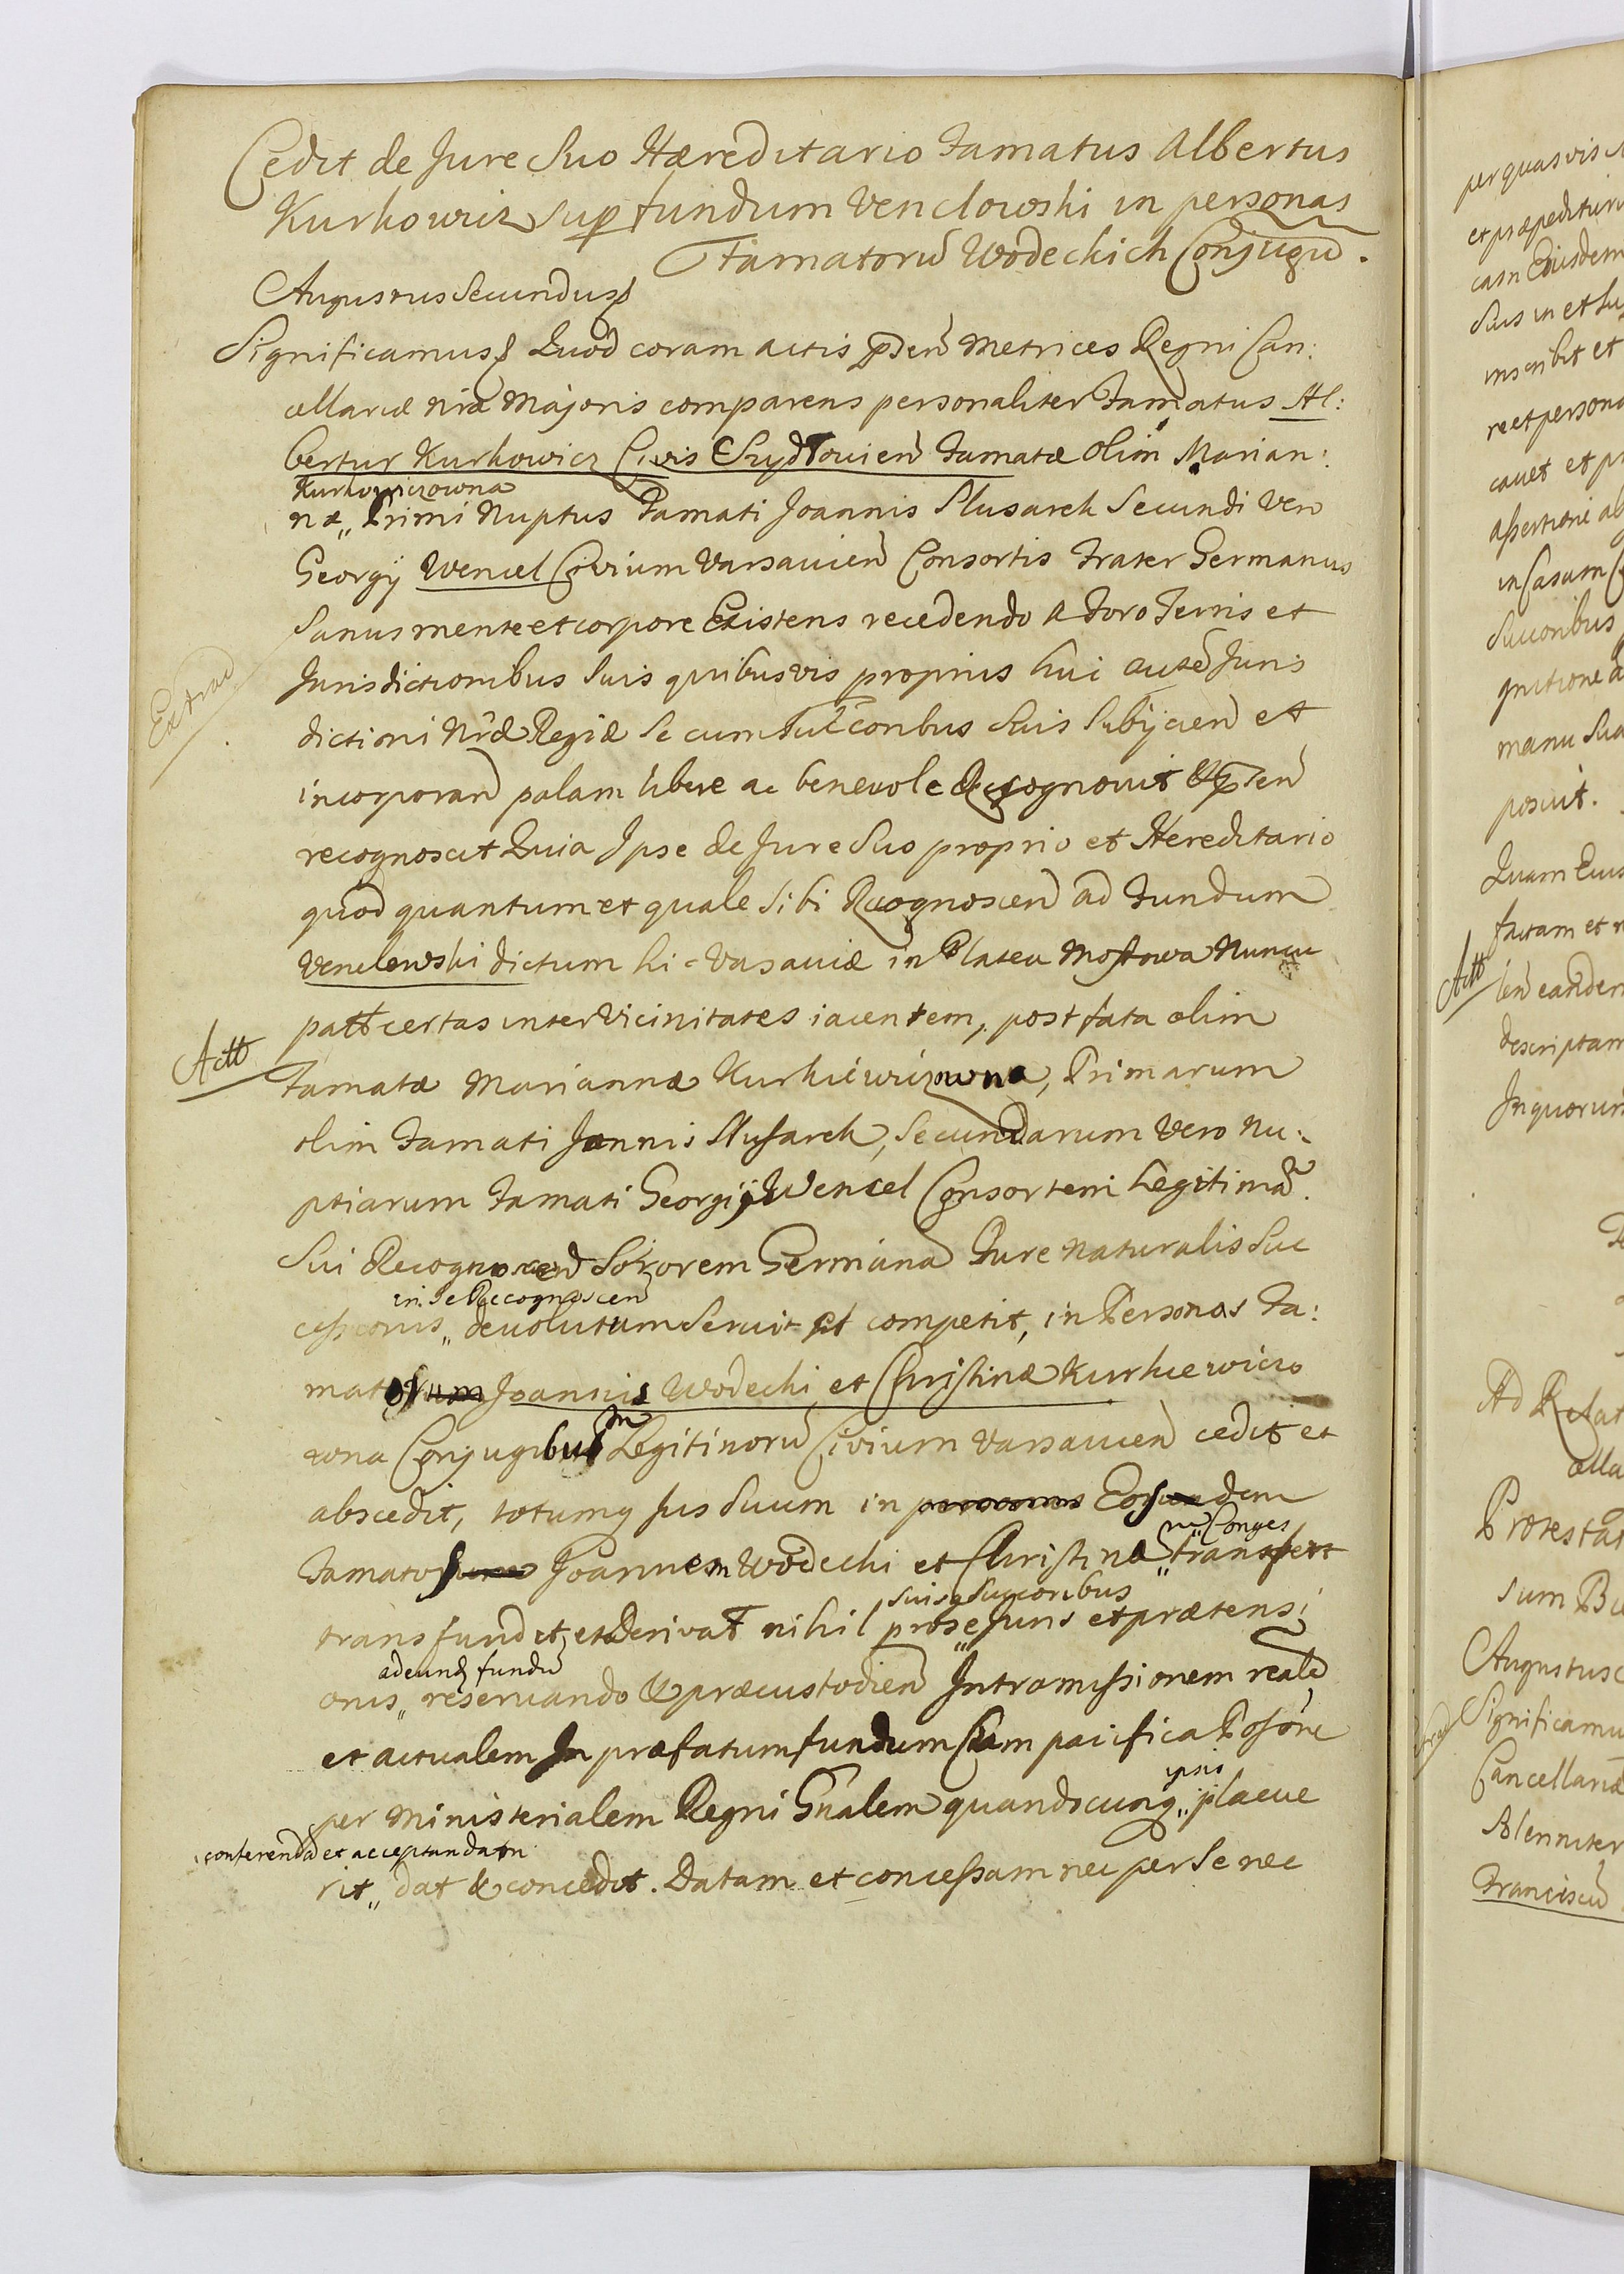 Cedit de Jure Suo Hæreditario Famatus Albertus
Kurkowicz sup fundum Venclowski in personas
Famatorũ Wodeckich Conjugũ.
Augustus Secundus
Significamus Quod coram actis pñen Metrices Regni Can:
cellariæ nræ Majoris comparens personaliter Famatus Al:
bertus Kurkowicz Civis Szydłovien Famatæ olim Marian:
Kurkowiczowna
næ„ Primi Nuptus Famati Joannis Slusarek Secundi Vero
Georgij Wencel Civium Varsavien Consortis Frater Germanus
Sanus mente et corpore Existens recedendo a Foro Terris et
Extrad
Jurisdictionibus Suis quibusvis proprijs huic autẽ Juris
dictioni Nræ Regiæ Se cum Succoribus Suis Subijcien et
incorporand palam libere ac benevole Recognovit & pñen
recognoscit Quia Ipse de Jure Suo proprio et Hereditario
quod quantum et quale Sibi Recognoscen ad Fundum
Venclewski dictum hic Varsaviæ in Platea Mostowa Nuncu
patt certas inter Vicinitates iacentem, post fata olim
Actt
Famatæ Mariannæ Kurkiewiczowna, Primarum
olim Famati Joannis Slusarek, Secundarum Vero Nu:
ptiarum Famati Georgij Wencel Consortem Legitimã.
Sui Recognoscen Sororem Germana Jure naturalis Suc
in Se Recognoscen
cessionis„ devolutum Servit et competit, in Personas Fa:
matorum Joannis Wodecki et Christinæ Kurkiewiczo
wna Conjugibus Legitimorũ Civium Varsavien cedit et
abscedit, totumq Jus Suum in personas Eosdem
Famatos Joannem Wodecki et Christina„ transfert
Conges
suisq Succoribus
transfundit et Derivat nihil pro se„ Juris et prætensi
ad eund fundũ
onis„ reservando & præcustodien Intromissionem realẽ
et actualem In præfatum fundum cum pacifica Possõne
ipsis
per Ministerialem Regni Gñalem quandocunq„ placue
conferendã et acceptandam
rit„ dat & concedit. Datam et concessam nec per Se nec
per quasvis
et præpedituru
casu Eiusdem
Suis in et Su
inscribit et
re et persona
cavet et pr
assertione ab
in Casum
Succoribus
gnitione a
manu Sua
posuit.
Quam Eius
factam et
Actt
eandem
descriptam
In quorum
Ad Relat
cella
Protestat
sum
Augustus
Significamu
Cancellariæ
Solenniter
Franciscũ